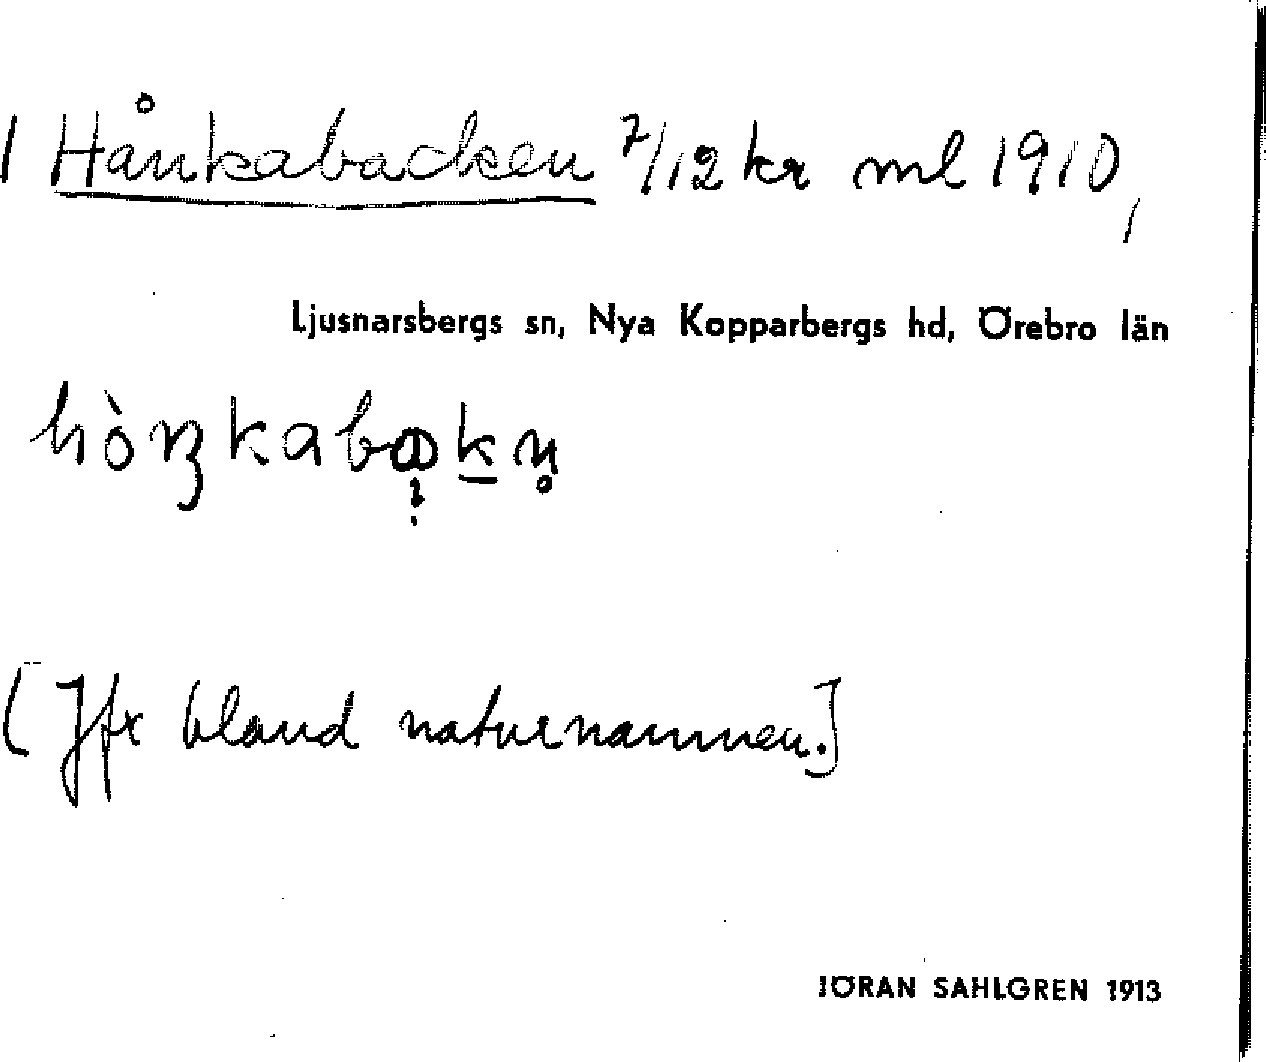 | Hånkabacken 7/12 kr ml 1910,
Ljusnarsbergs sn, Nya Kopparbergs hd, Örebro län
[Jfr bland naturnamnen.]
JÖRAN SAHLGREN 1913